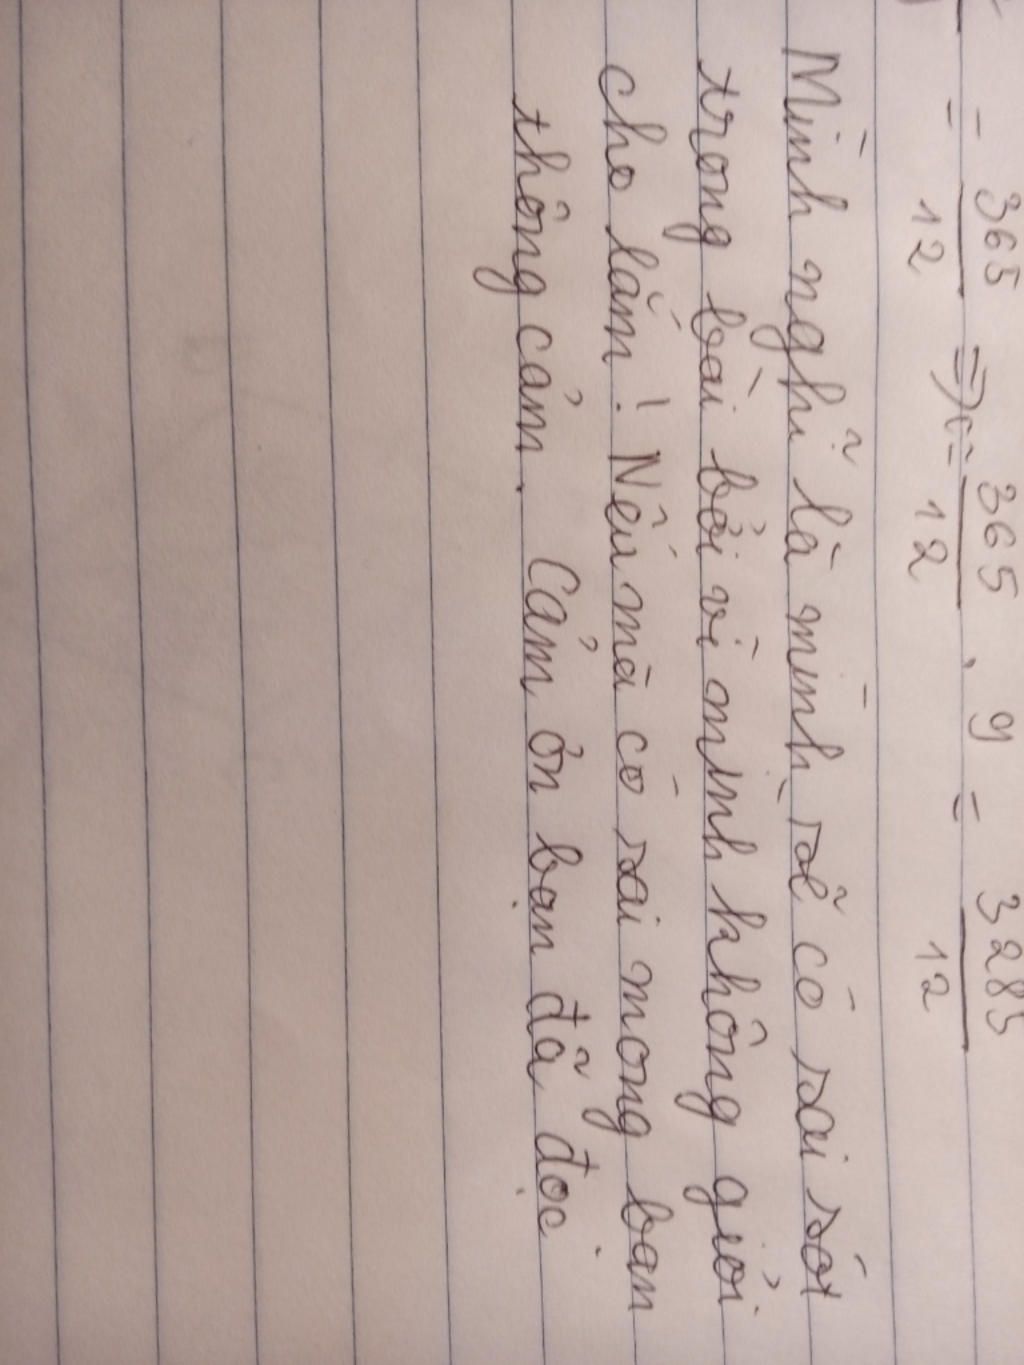 = - 365/12 => c = 365/12 . 9 = 3285/12
Mình nghĩ là mình sẽ có sai sót
trong bài bởi vì mình không giỏi
cho lắm! Nếu mà có sai mong bạn
thông cảm. Cảm ơn bạn đã đọc.